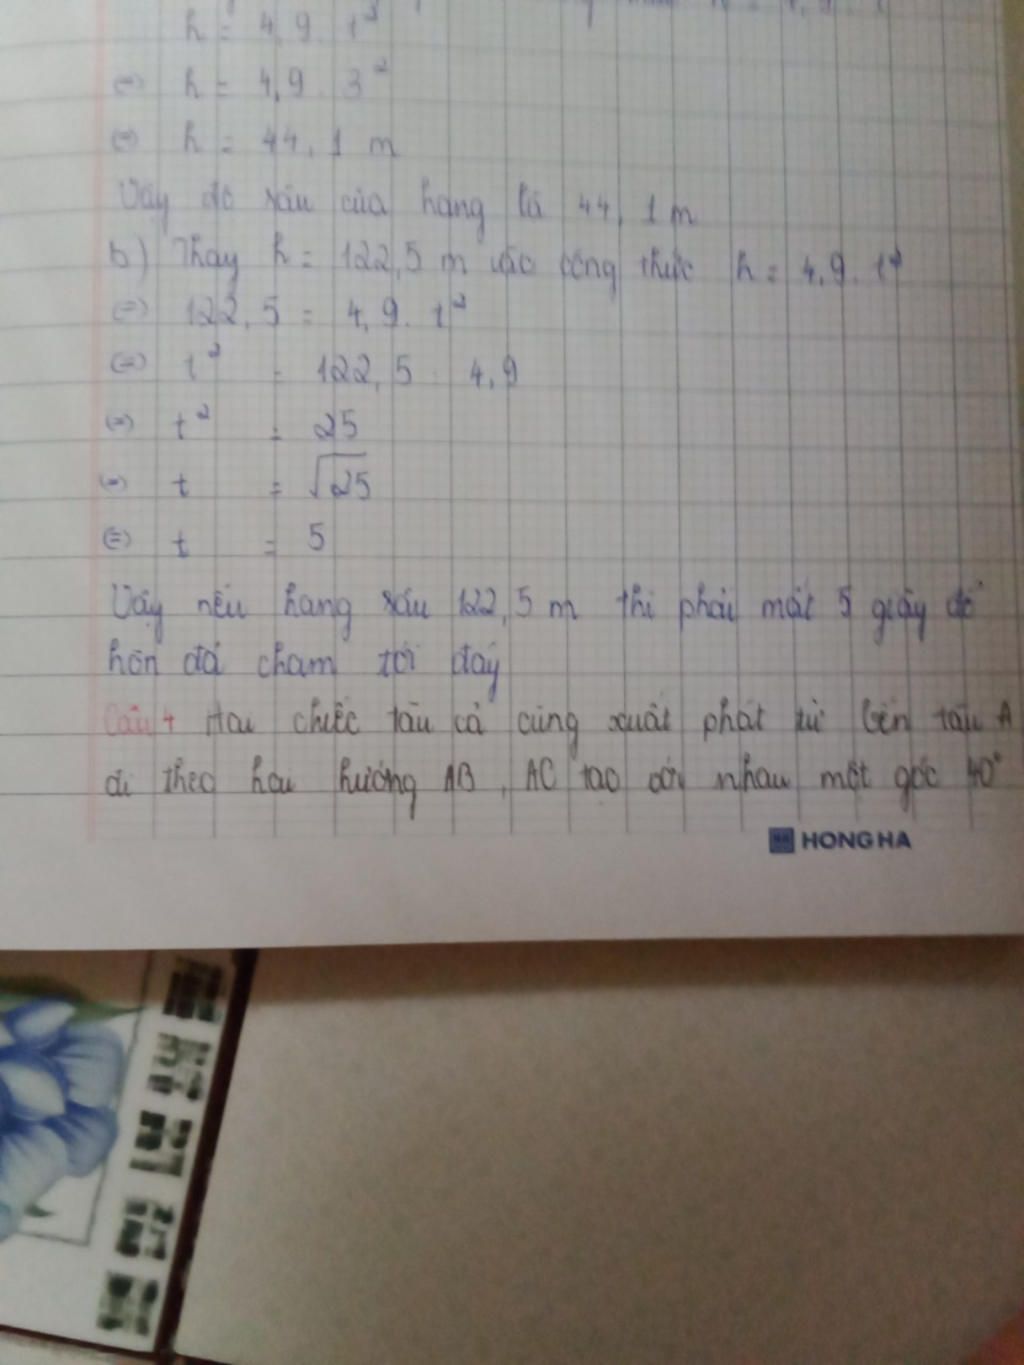 h = 4,9 . t²
⇔ h = 4,9 . 3²
⇔ h = 44,1 m
Vậy độ sâu của hang là 44,1m
b) Thay h = 122,5 m vào công thức h = 4,9 . t²
⇔ 122,5 = 4,9 . t²
⇔ t² = 122,5 : 4,9
⇔ t² = 25
⇔ t = √25
⇔ t = 5
Vậy nếu hang sâu 122,5 m thì phải mất 5 giây để
hòn đá chạm tới đáy
Câu 4 Hai chiếc tàu cả cùng xuất phát từ bến tàu A
đi theo hai hướng AB, AC tạo với nhau một góc 40°
HONG HA